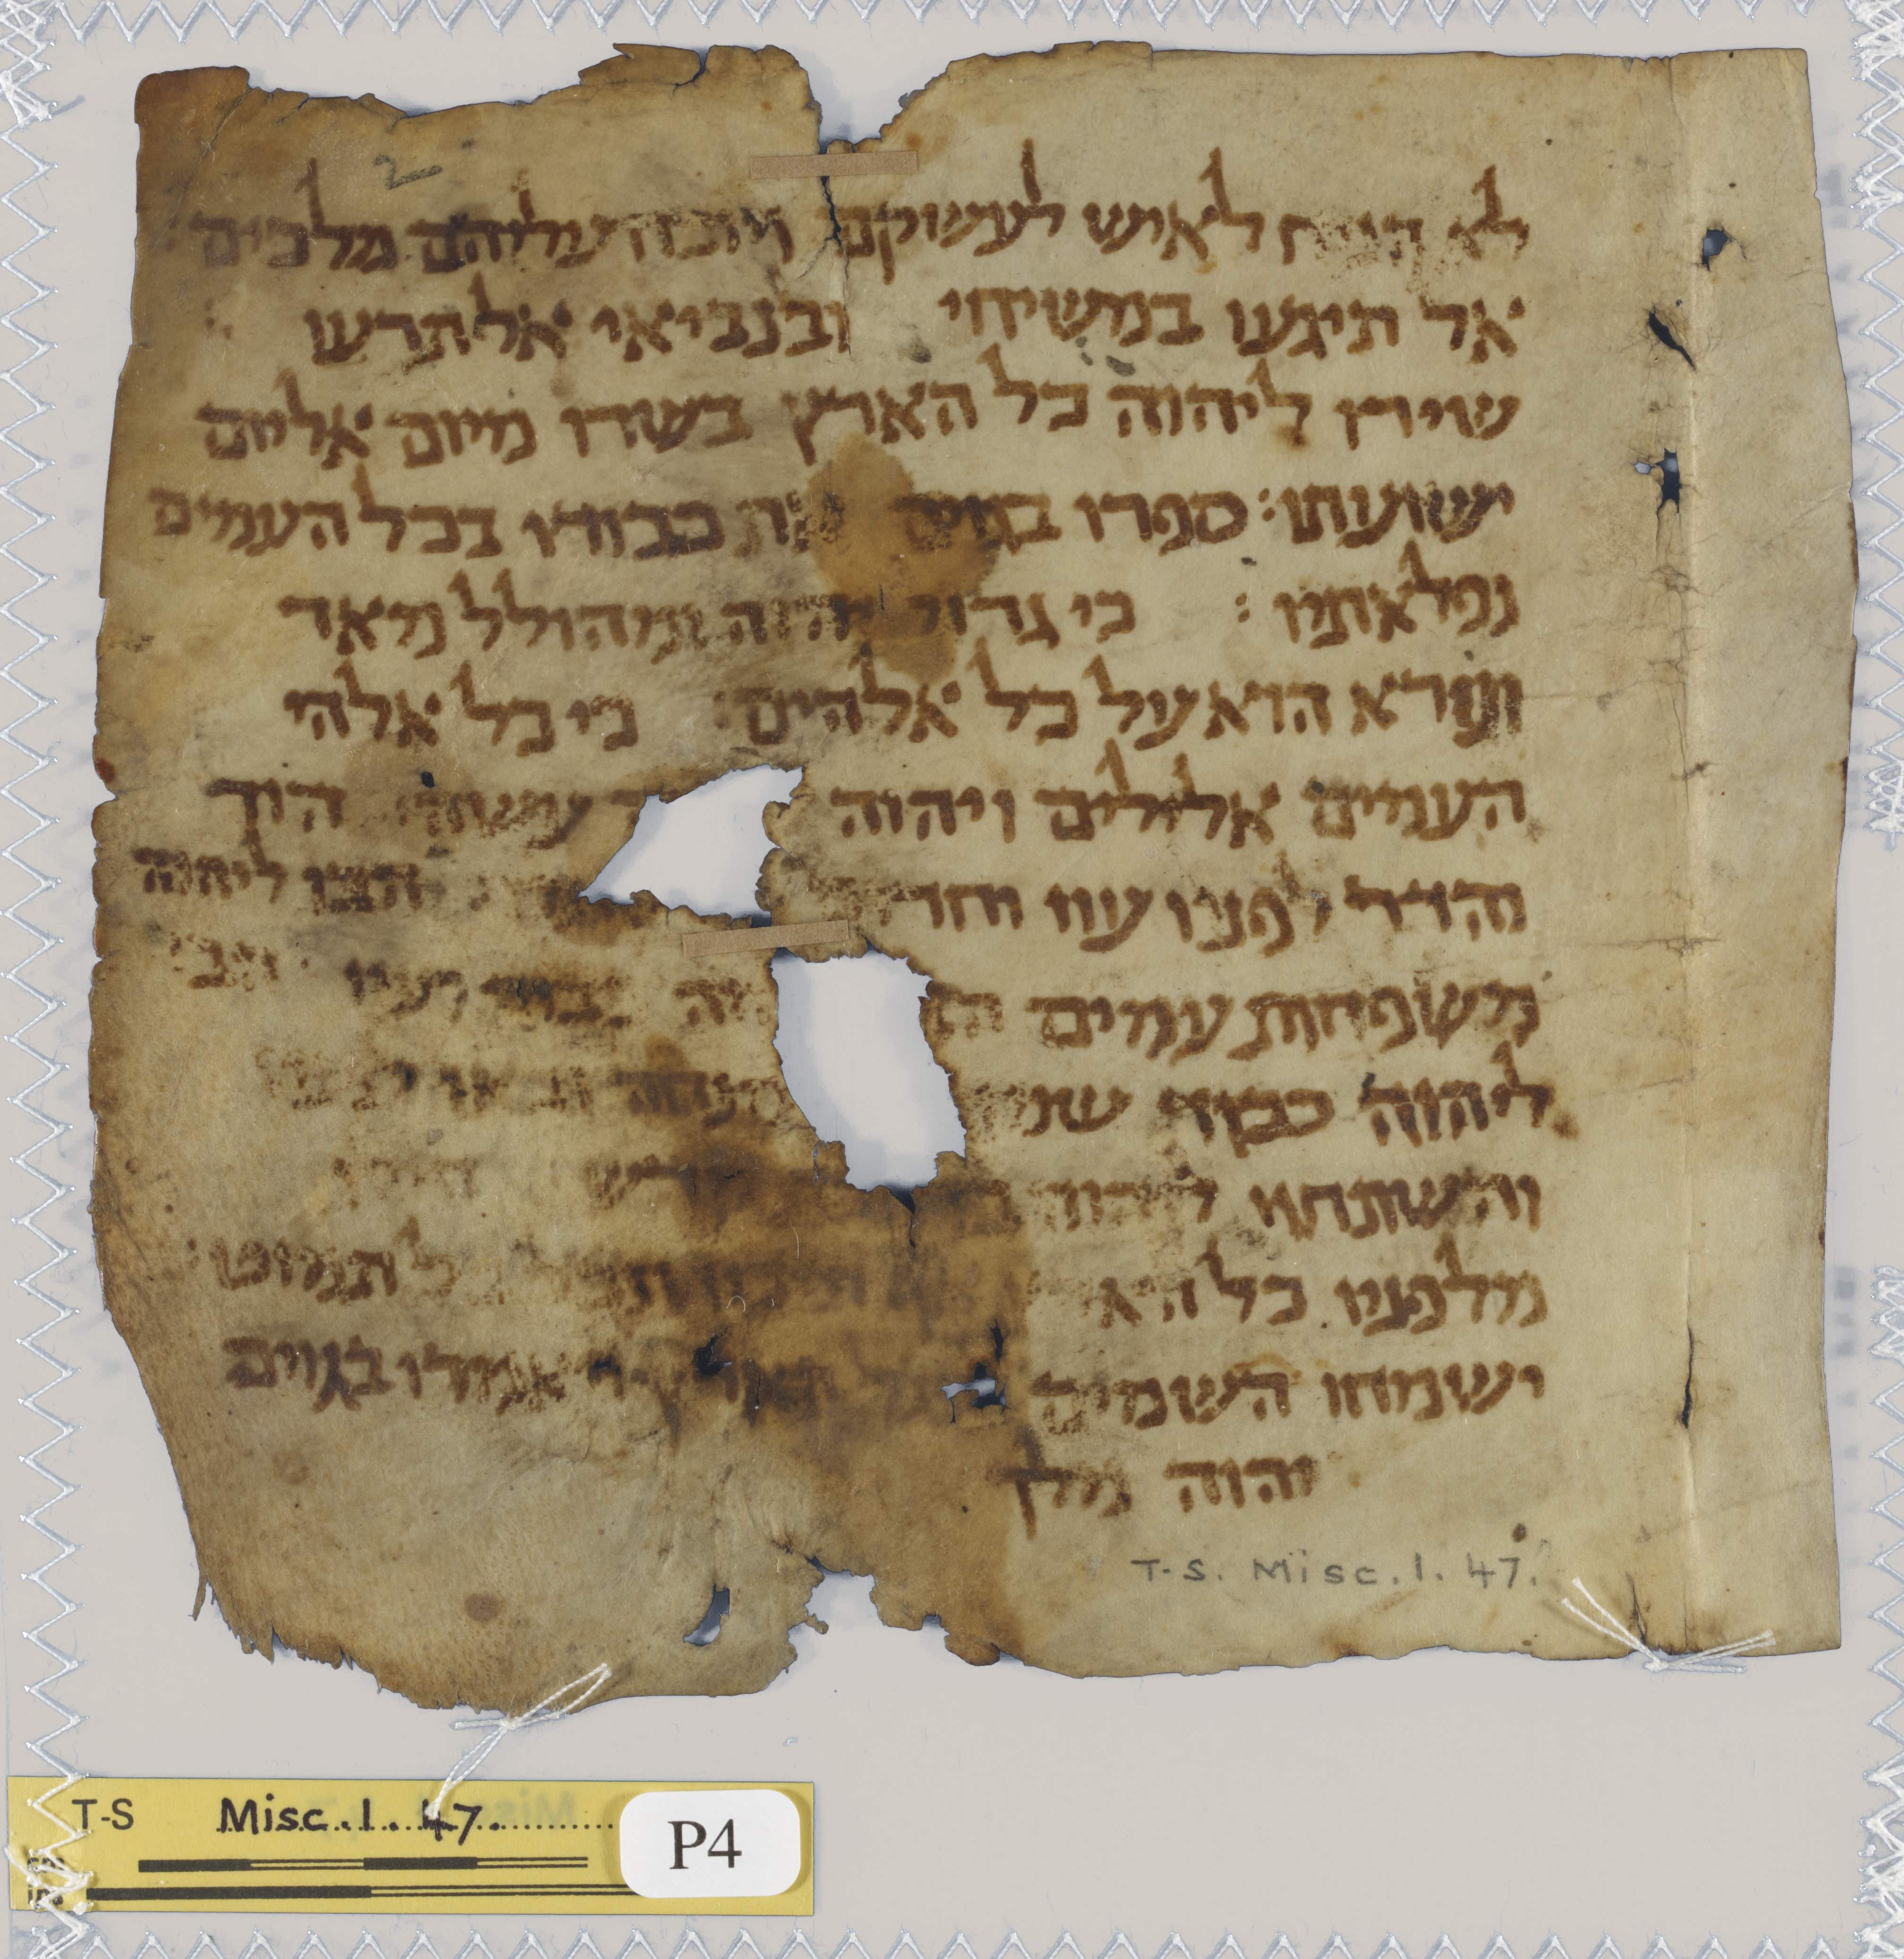 2
לא הניח לאיש לעשקם ויוכח עליהם מלכים
אל תיגעו במשיחי ובנביאי אל תרעו
שירו ליהוה כל הארץ בשרו מיום אל יום
ישועתו: ספרו בגוים את כבודו בכל העמים
נפלאתיו : כי גדול יהוה ומהולל מאד
ונורא הוא על כל אלהים: כי כל אלהי
העמים אלילים ויהוה הוד
והדר לפניו עוז הבו ליהוה
משפחות עמים
ליהוה כבוד מנחה
והשתחוו ליהוה
מלפניו כל תמוט:
ישמחו השמים ויאמרו בגוים
יהוה מלך
T-S. Misc. 1. 47.
T-S Misc. 1. 47.
P4
cm
ins